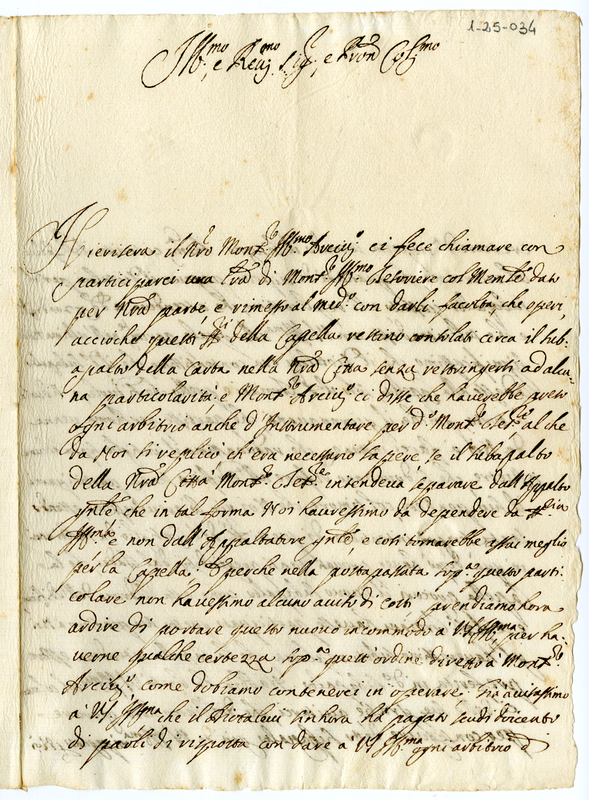 1-25-034
Ill:mo, e Rev:mo Sig:r, e Pron Col:mo
Hierisera il Nro Mons:r Ill:mo Arciv:o ci fece chiamare con
participarci una lra di Mons:r Ill:mo Tesoriere col Memle dato
per Nra parte, e rimesso al med:o con darli facoltà, che operi,
accioche questi SSri della Capella restino consolati circa il sub-
apalto della Carta nella Nra Città senza restringersi ad alcu-
na particolarità, e Mons:r Arciv:o ci disse che haverebbe preso
ogni arbitrio anche d'Instrumentare per d:o Mons:r Tes:re al che
da Noi si replicò ch'era necessario sapere, se il
della Nra Città Mons:r Tes:re intendeva separare dall'Appalto
gnle che in tal forma Noi havressimo da dependere da
Ill:ma e non dall'Appaltatore gnle, e così tornarebbe assai meglio
per la Capella. E perche nella posta passata sop:a questo parti-
colare non havessimo alcuno aviso di costì prendiamo hora
ardire di portare questo nuovo incommodo à VS Ill:ma per ha-
verne qualche certezza sop:a quest'ordine diretto à Mons:r
Arciv:o, come dobiamo contenerci in operare. Già avisassimo
a VS Ill:ma che il sinhora hà pagato scudi ducento
di paoli di risposta con dare à VS Ill:ma ogni arbitrio